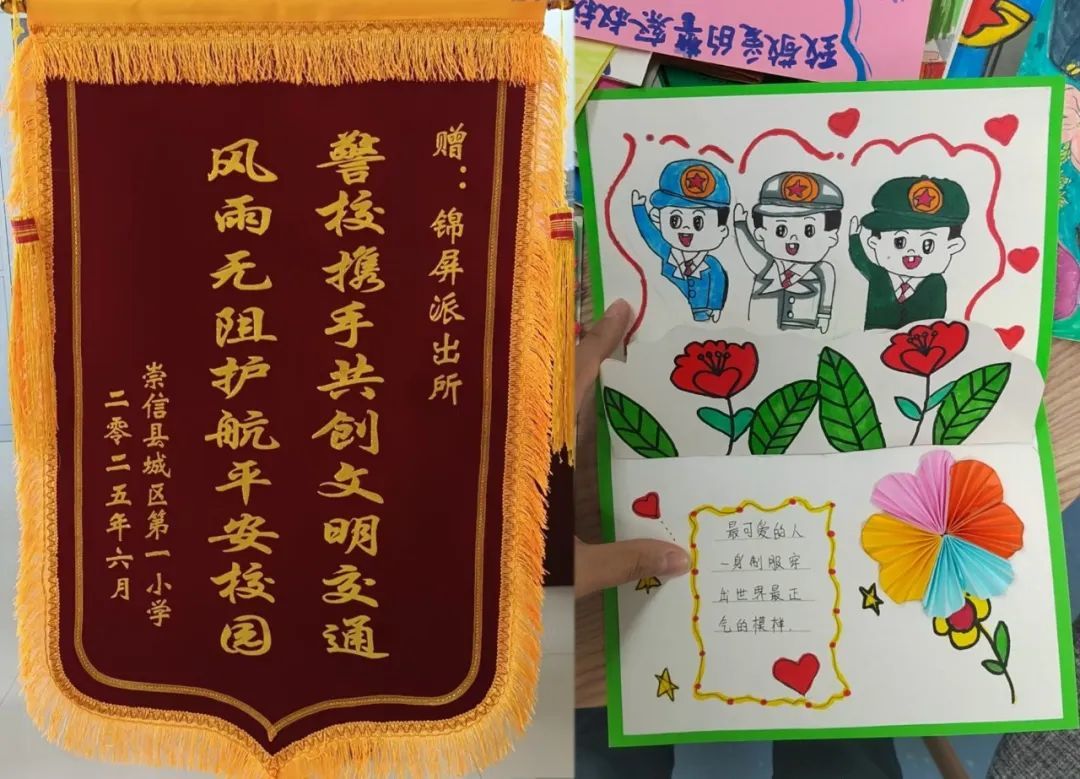 赠：锦屏派出所
警校携手共创文明交通
风雨无阻护航平安校园
崇信县城区第一小学
二零二五年六月
致敬爱的警察叔叔
最可爱的人
一身制服穿
出世界最正
气的模样.